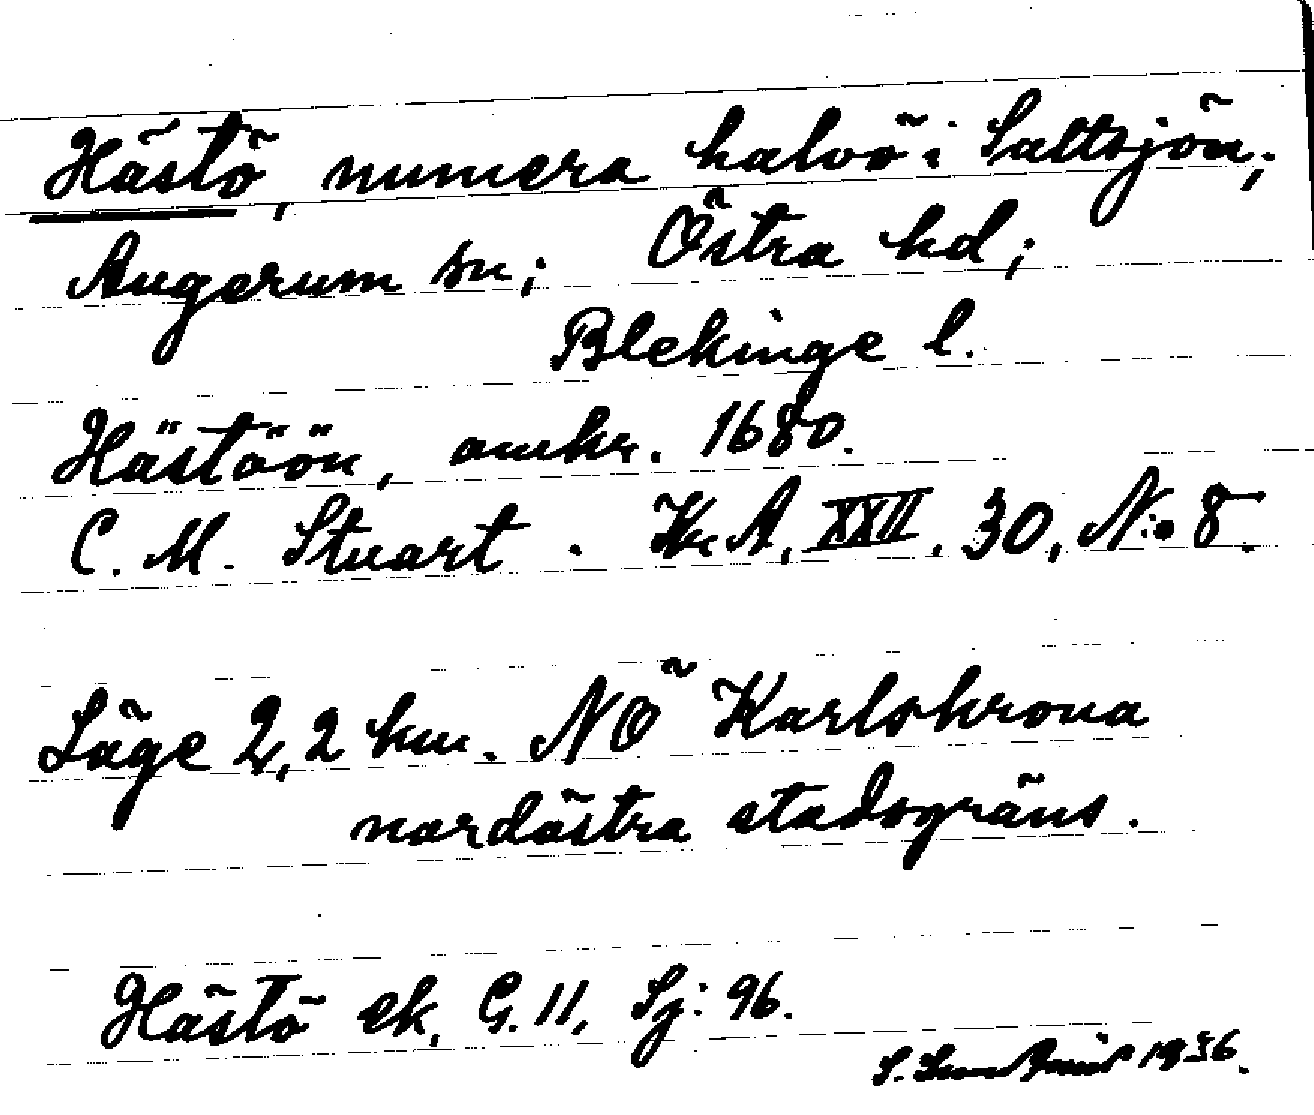 Hästö, numera halvö i Saltsjön;
Augerum sn; Östra hd;
Blekinge l.
Hästöön, omkr. 1680.
C. M. Stuart. Kr.A. XXII. 30, N:o 8.
Läge 2,2 km. NÖ Karlskrona
nordöstra stadsgräns.
Hästö ek, G. 11, Sj: 96.
S. 1936.